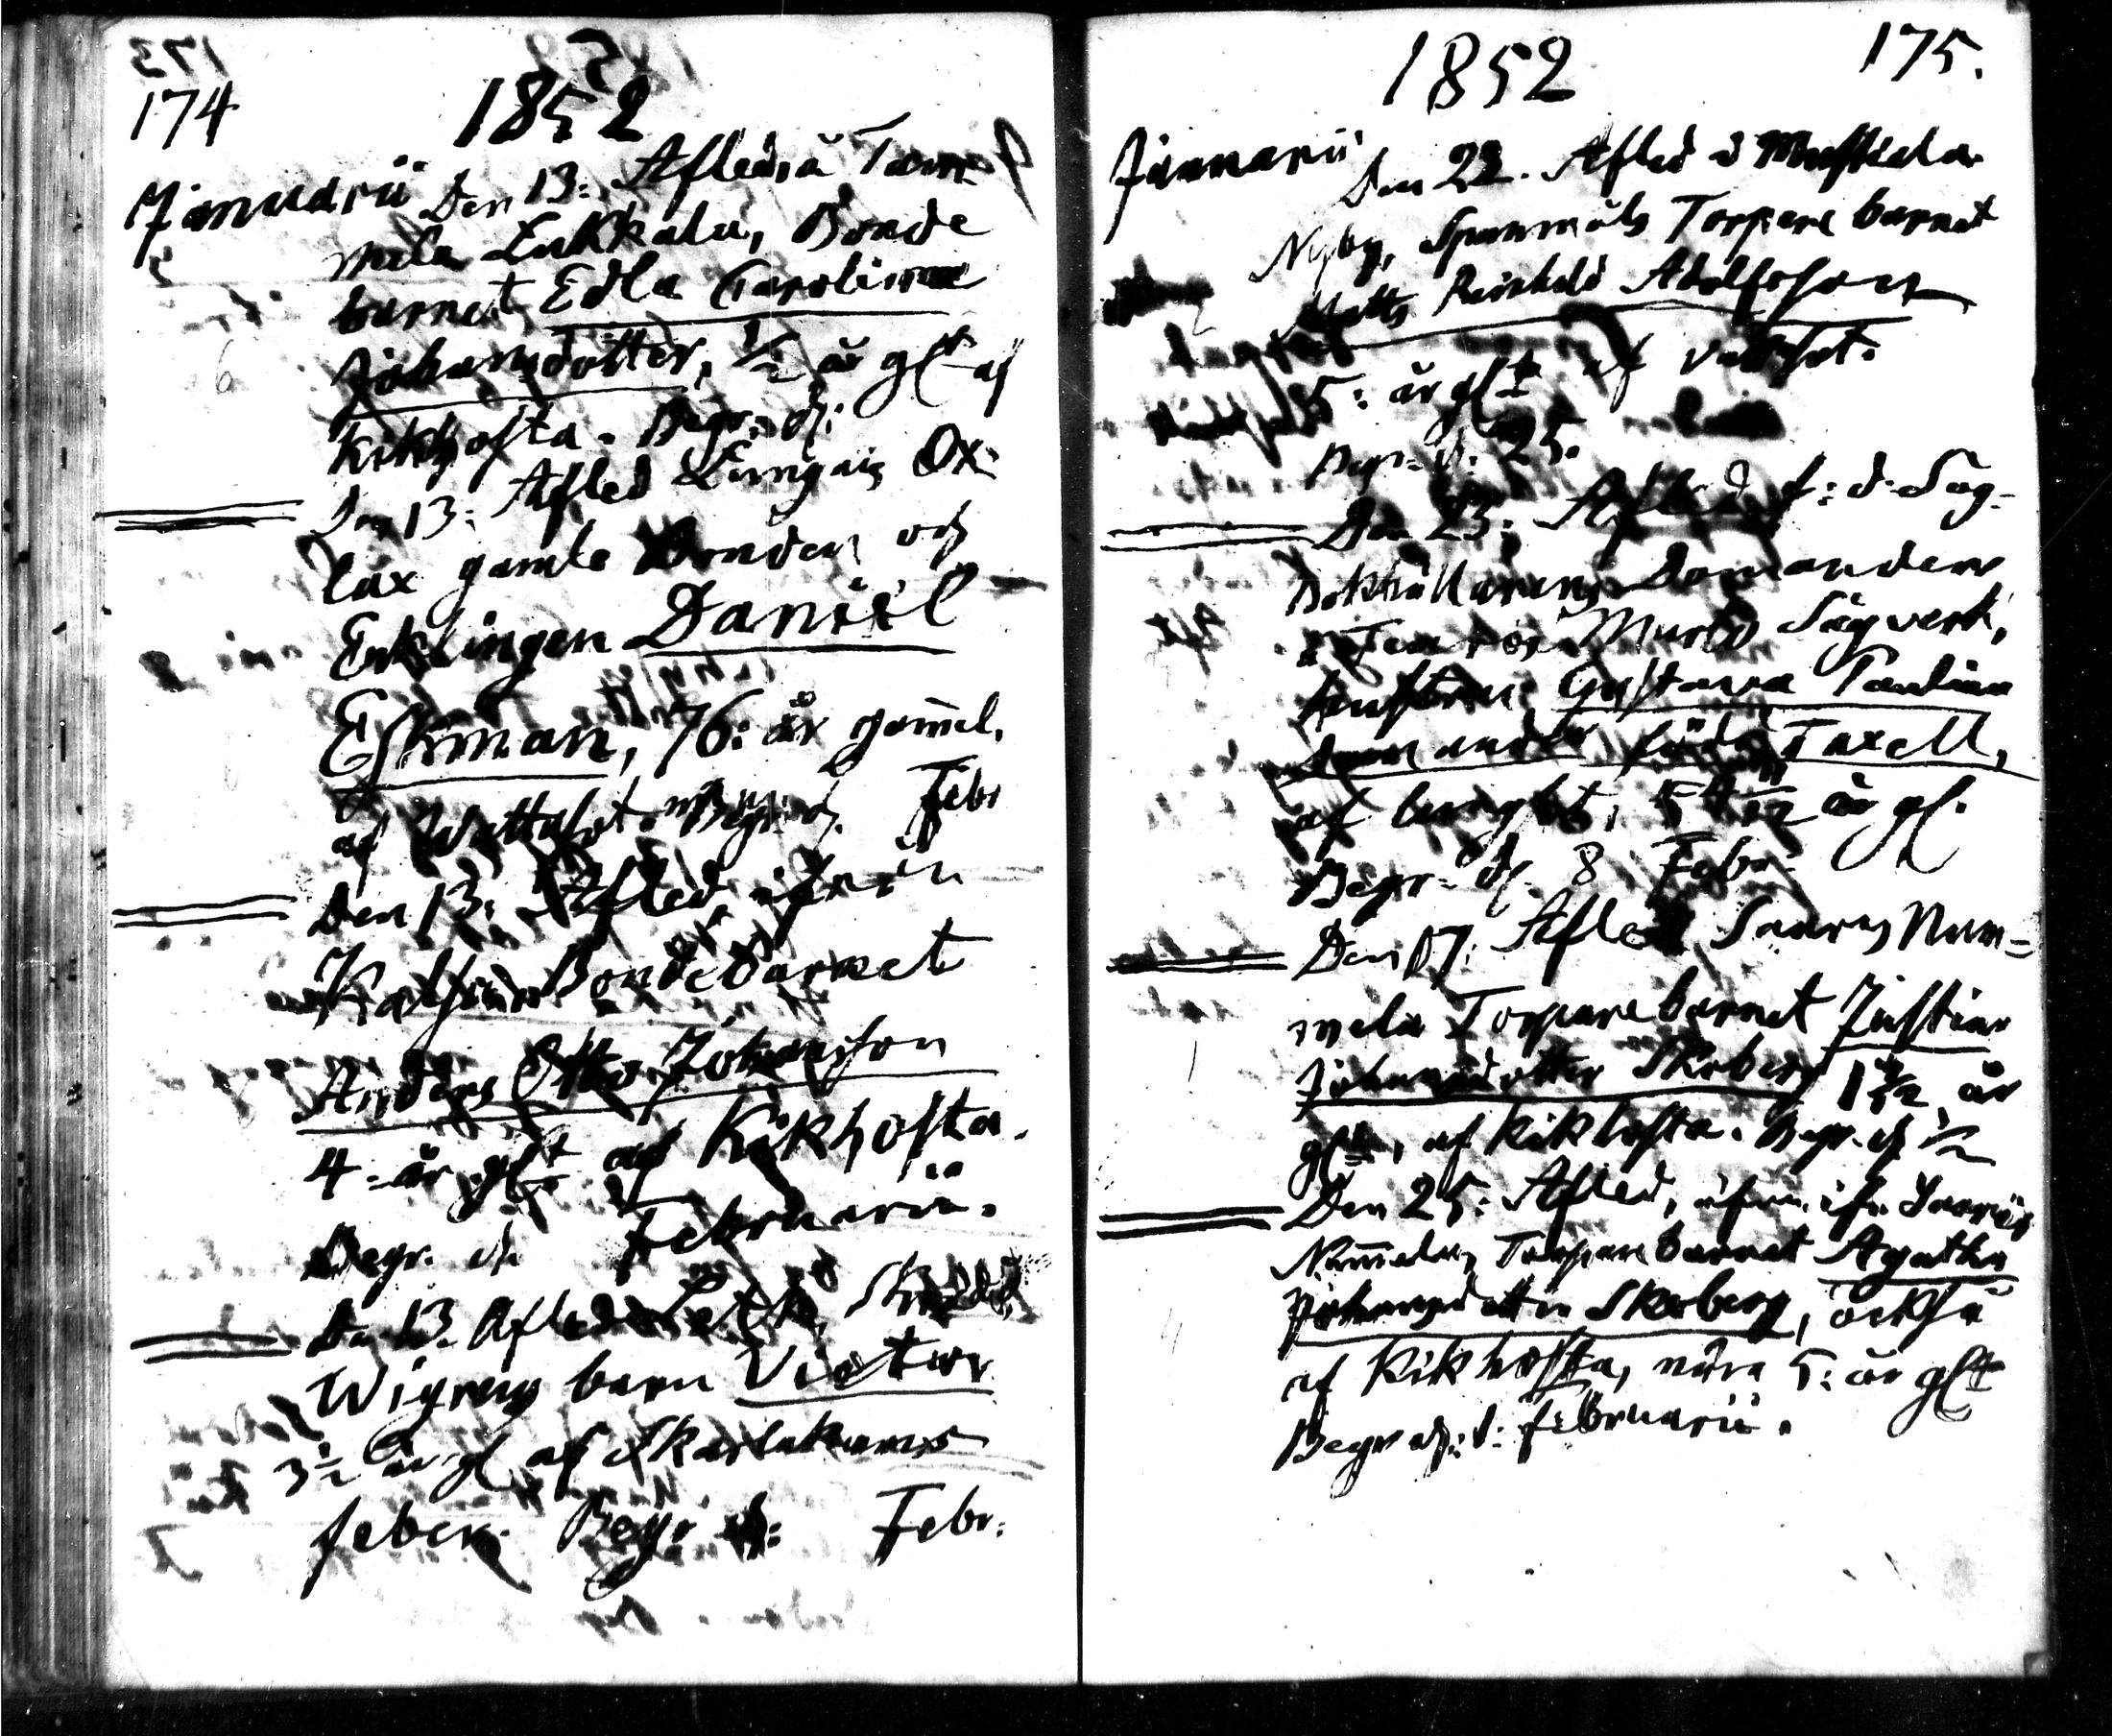 174
1852
Januarii Den 13: Afled, å Tam¬
mela Lukkala, Bonde
barnet Edla Carolina
Johansdotter, ½ år glt af
Kikhosta. Begr. d:
Den 13: Afled Lunga Ox¬
lax gamle Bonden och
Enklingen Daniel
Eskman, 76: år gammel,
af Wattusot. Begr. d. Febr
Den 13: Afled
Bondebarnet
Anders Otto Johansson
4: år glt af Kikhosta.
Begr. d. Februarii.
Den 13. Afled
Wigrens barn Victor
3½ år gl af Skarlakans
feber. Begr d: Febr.
175.
1852
Januarii Den 22. Afled i
Nyby, Spanmåls Torpare barnet
Matts Reinhold Adolfsson
5: år glt af
Begr. d. 25.
Den 23: Afled f: d. Såg¬
Bokhållarens Domanders
å Sågverk,
hustru Gustava Paulina
Domander född Taxell,
af 54 år gl.
Begr. d. 8 Febr.
Den 17: Afled Num¬
mela Torpare barnet Justina
Johansdotter Skoberg 1 år
glt, af Kikhosta. Begr. d ½
Den 25: Afled,
Nummela, Torpare barnet Agatha
Johansdotter Skoberg, också
af Kikhosta, nära 5: år glt
Begr d: Februarii.